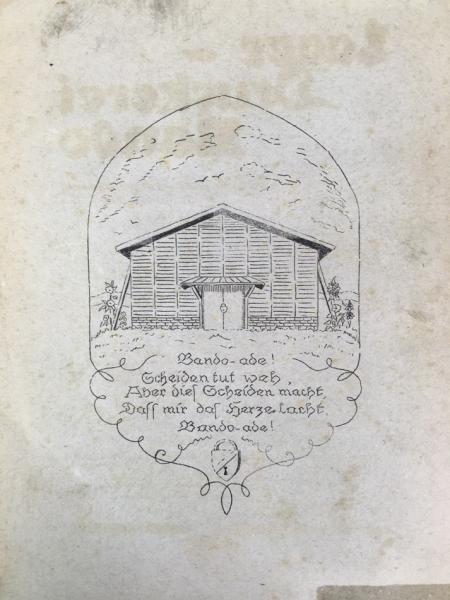 Bando-ade!
Scheiden tut weh,
Aber dies Scheiden macht,
Dass mir das Herze lacht,
Bando-ade!
Lager-
Druckerei
Bando